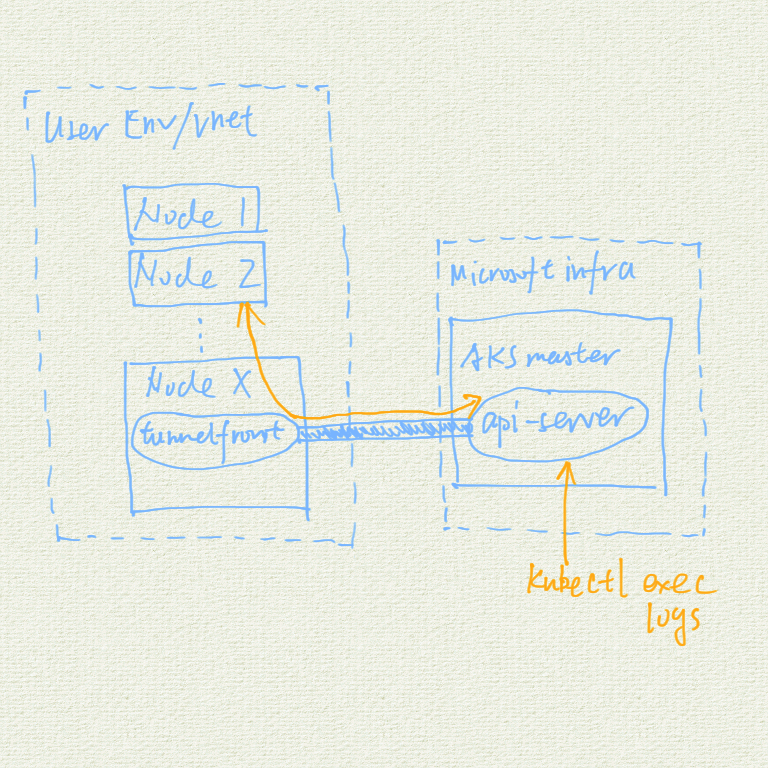 User Env/vnet
Node 1
Node 2
Node X
tunnelfront
Microsoft infra
AKS master
api-server
Kubectl exec
logs